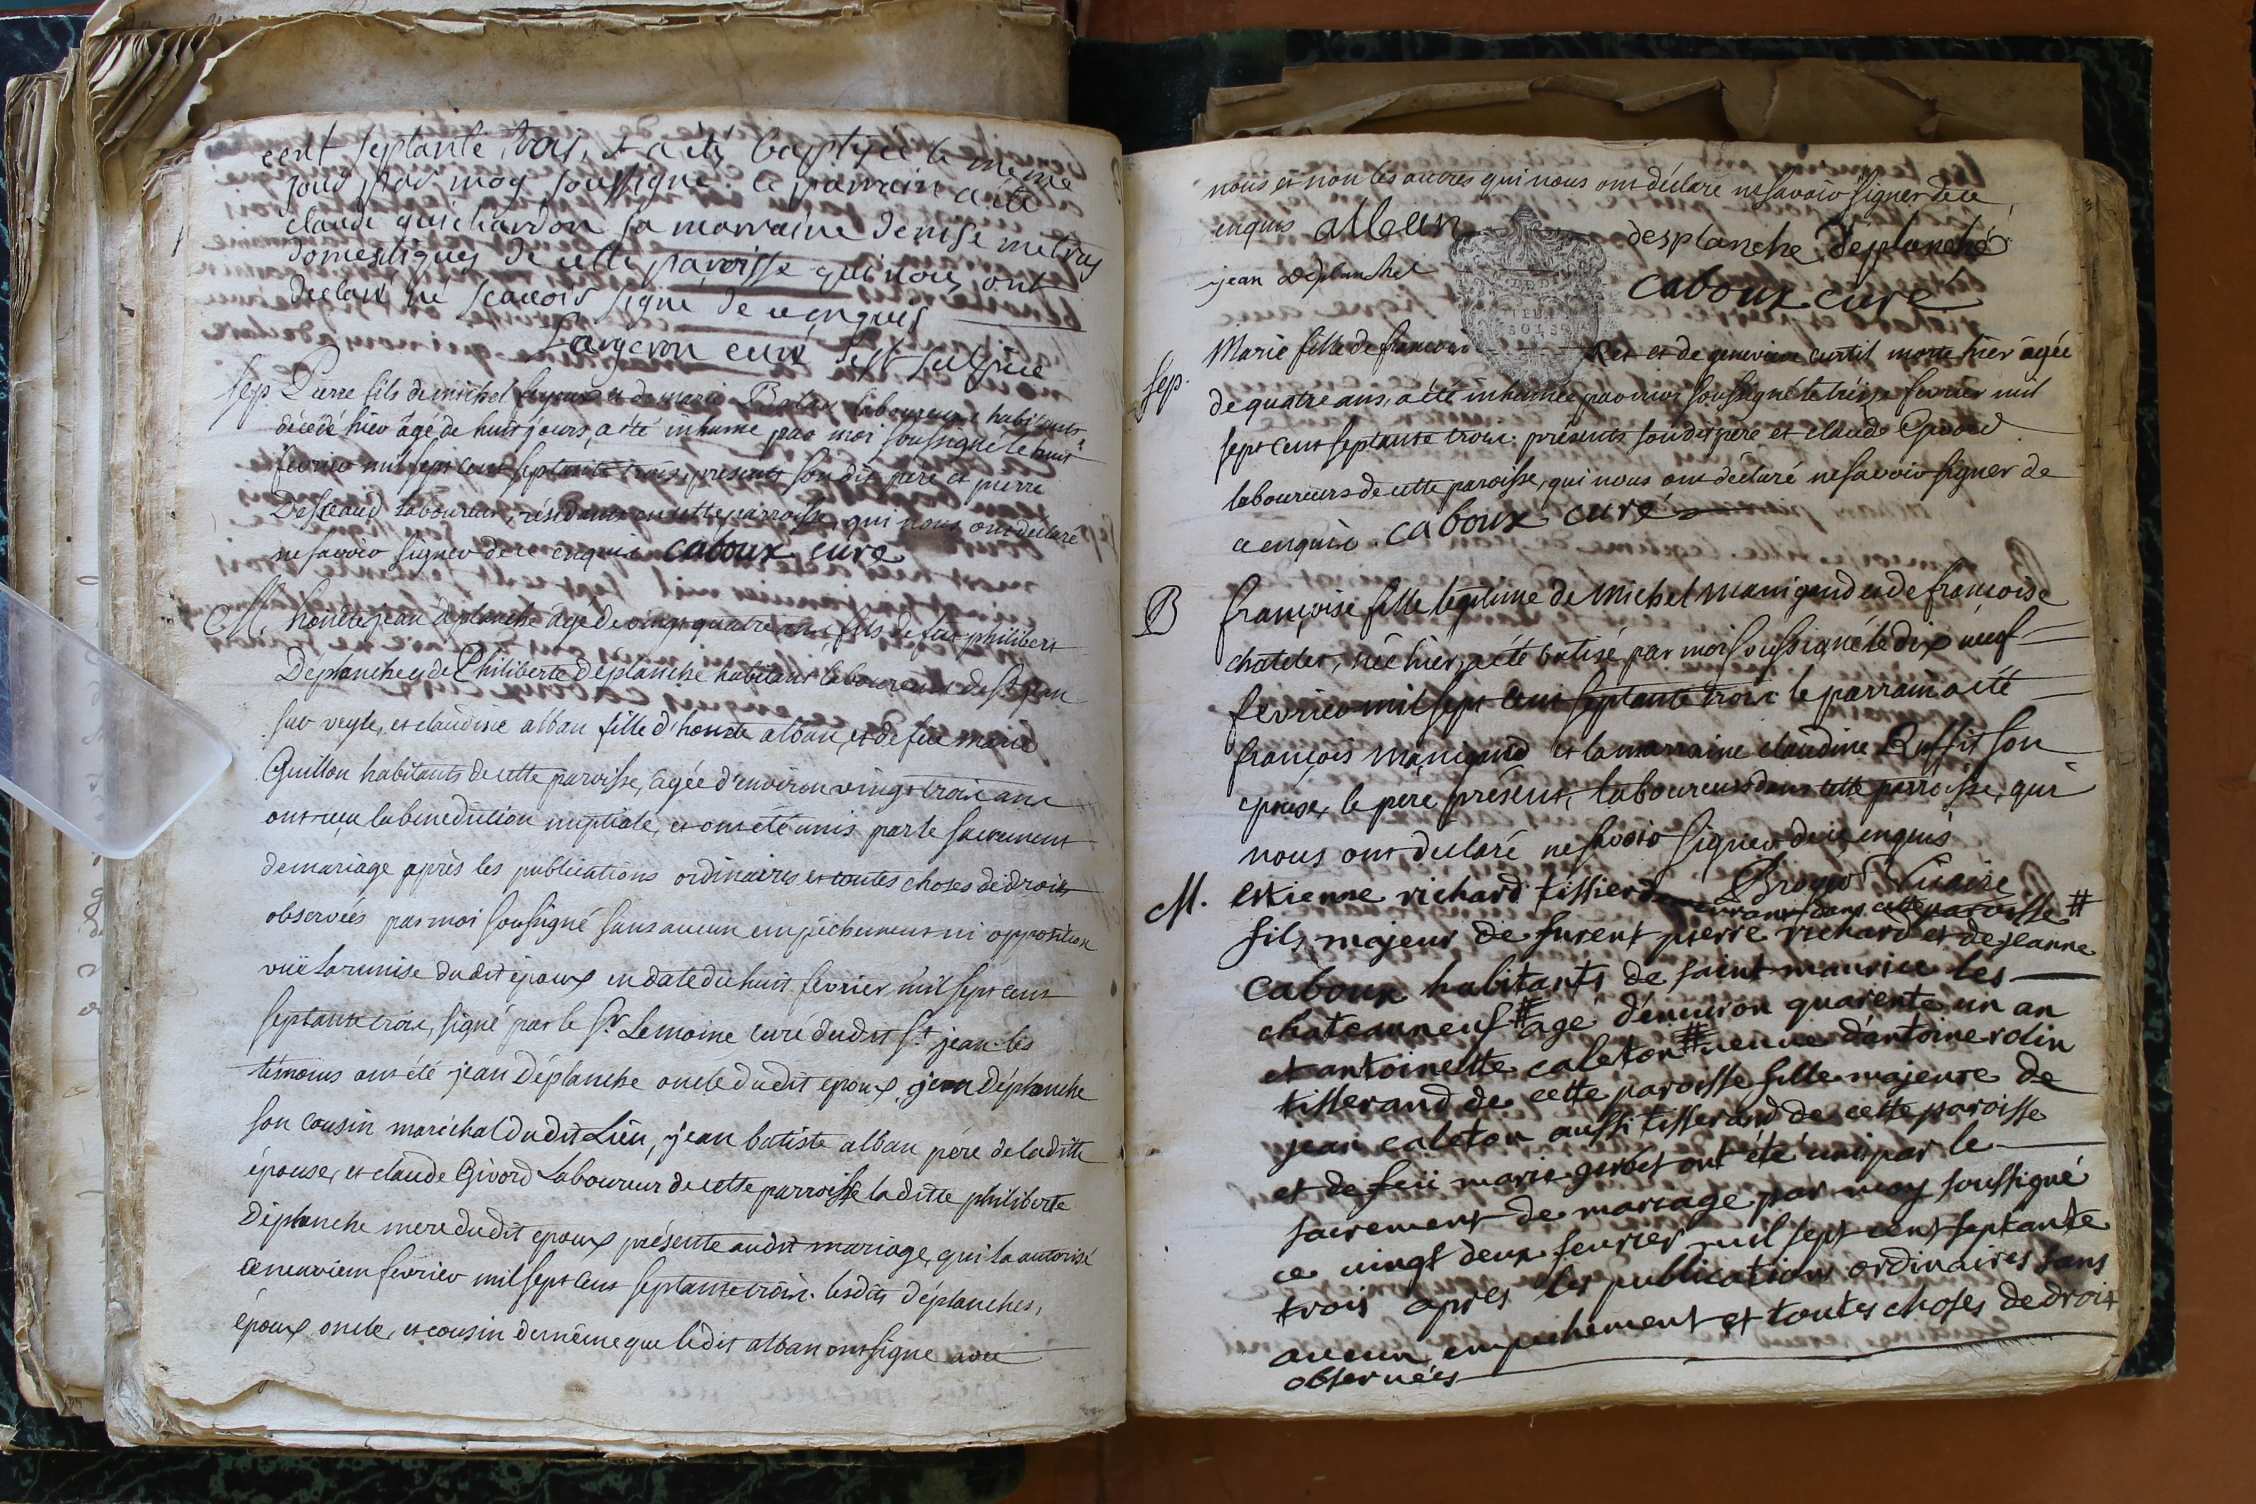 cent septante trois, et a eté baptisée le meme
jour par moy soussigné. le parrain a été
claude guichardon sa marraine denise metras
domestiques de cette paroisse qui nous ont
declaré ne scavoir signe de ce enquis
Largeron curé de St Sulpice
sep. Pierre fils de michel et de marie laboureurs habitants
décédé hier âgé de huit jours, a été inhumé par moi soussigné le huit
fevrier mil sept cent septante trois, presents son dit pere et pierre
laboureur, résidants en cette parroisse, qui nous ont declaré
ne savoir signer de ce enquis caboux curé
M. honête jean déplanche âgé de vingt quatre ans fils de feu philibert
Deplanche et de Philiberte déplanche habitans laboureurs de St jean
sur veyle, et claudine alban fille d'honête alban, et de feue marie
Guillon habitants de cette paroisse, agée d'environ vingt trois ans
ont reçu la benediction nuptiale, et ont été unis par le sacrement
de mariage après les publications ordinaires et toutes choses de droit
observées par moi soussigné sans aucun empêchement ni opposition
vüe la remise du dit époux en date du huit fevrier mil sept cent
septante trois, signé par le Sr Lemoine curé dudit St jean. les
témoins ont été jean Déplanche oncle du dit epoux, jean Déplanche
son cousin maréchal du dit Lieu, jean batiste alban père de la ditte
épouse, et claude Givord Laboureur de cette parroisse la ditte philiberte
Déplanche mere du dit epoux présente au dit mariage, qui la autorisé
ce neuvieme fevrier mil sept cent septante trois. les dits déplanches,
époux oncle, et cousin de même que le dit alban ont signe avec
nous et non les autres qui nous ont déclaré ne savoir signer de ce
enquis alban desplanche déplanche
jean deplanche
caboux curé
sep. Marie fille de francois et de genevieve curtil morte hier âgée
de quatre ans, a été inhumée par moi soussigné le treize fevrier mil
sept cent septante trois. présents son dit pere et claude Givord
laboureurs de cette paroisse, qui nous ont déclaré ne savoir signer de
ce enquis. caboux curé
B françoise fille légitime de Michel manigand et de françoise
chatelet, née hier, a été batisé par moi soussigné le dix neuf
fevrier mil sept cent septante trois le parrain a été
françois manigand et la marraine claudine Ruffit son
epouse, le pere présent, laboureurs dans cette parroisse, qui
nous ont declaré ne savoir signer de ce enquis
Broyer Vicaire
M. estienne richard tissier demeurant dans cette paroisse #
fils majeur de furent pierre richard et de jeanne
caboux habitants de saint maurice les
chateauneuf # agé d'environ quarente un an
et antoinette caleton # ueuve d'antoine rolin
tisserand de cette paroisse fille majeure de
jean caleton aussi tisserand de cette paroisse
et de feüe marie gerbet ont été unis par le
sacrement de mariage par moy soussigné
ce vingt deux feurier mil sept cent septante
trois apres les publications ordinaires sans
aucun empechement et toutes choses de droit
obseruées